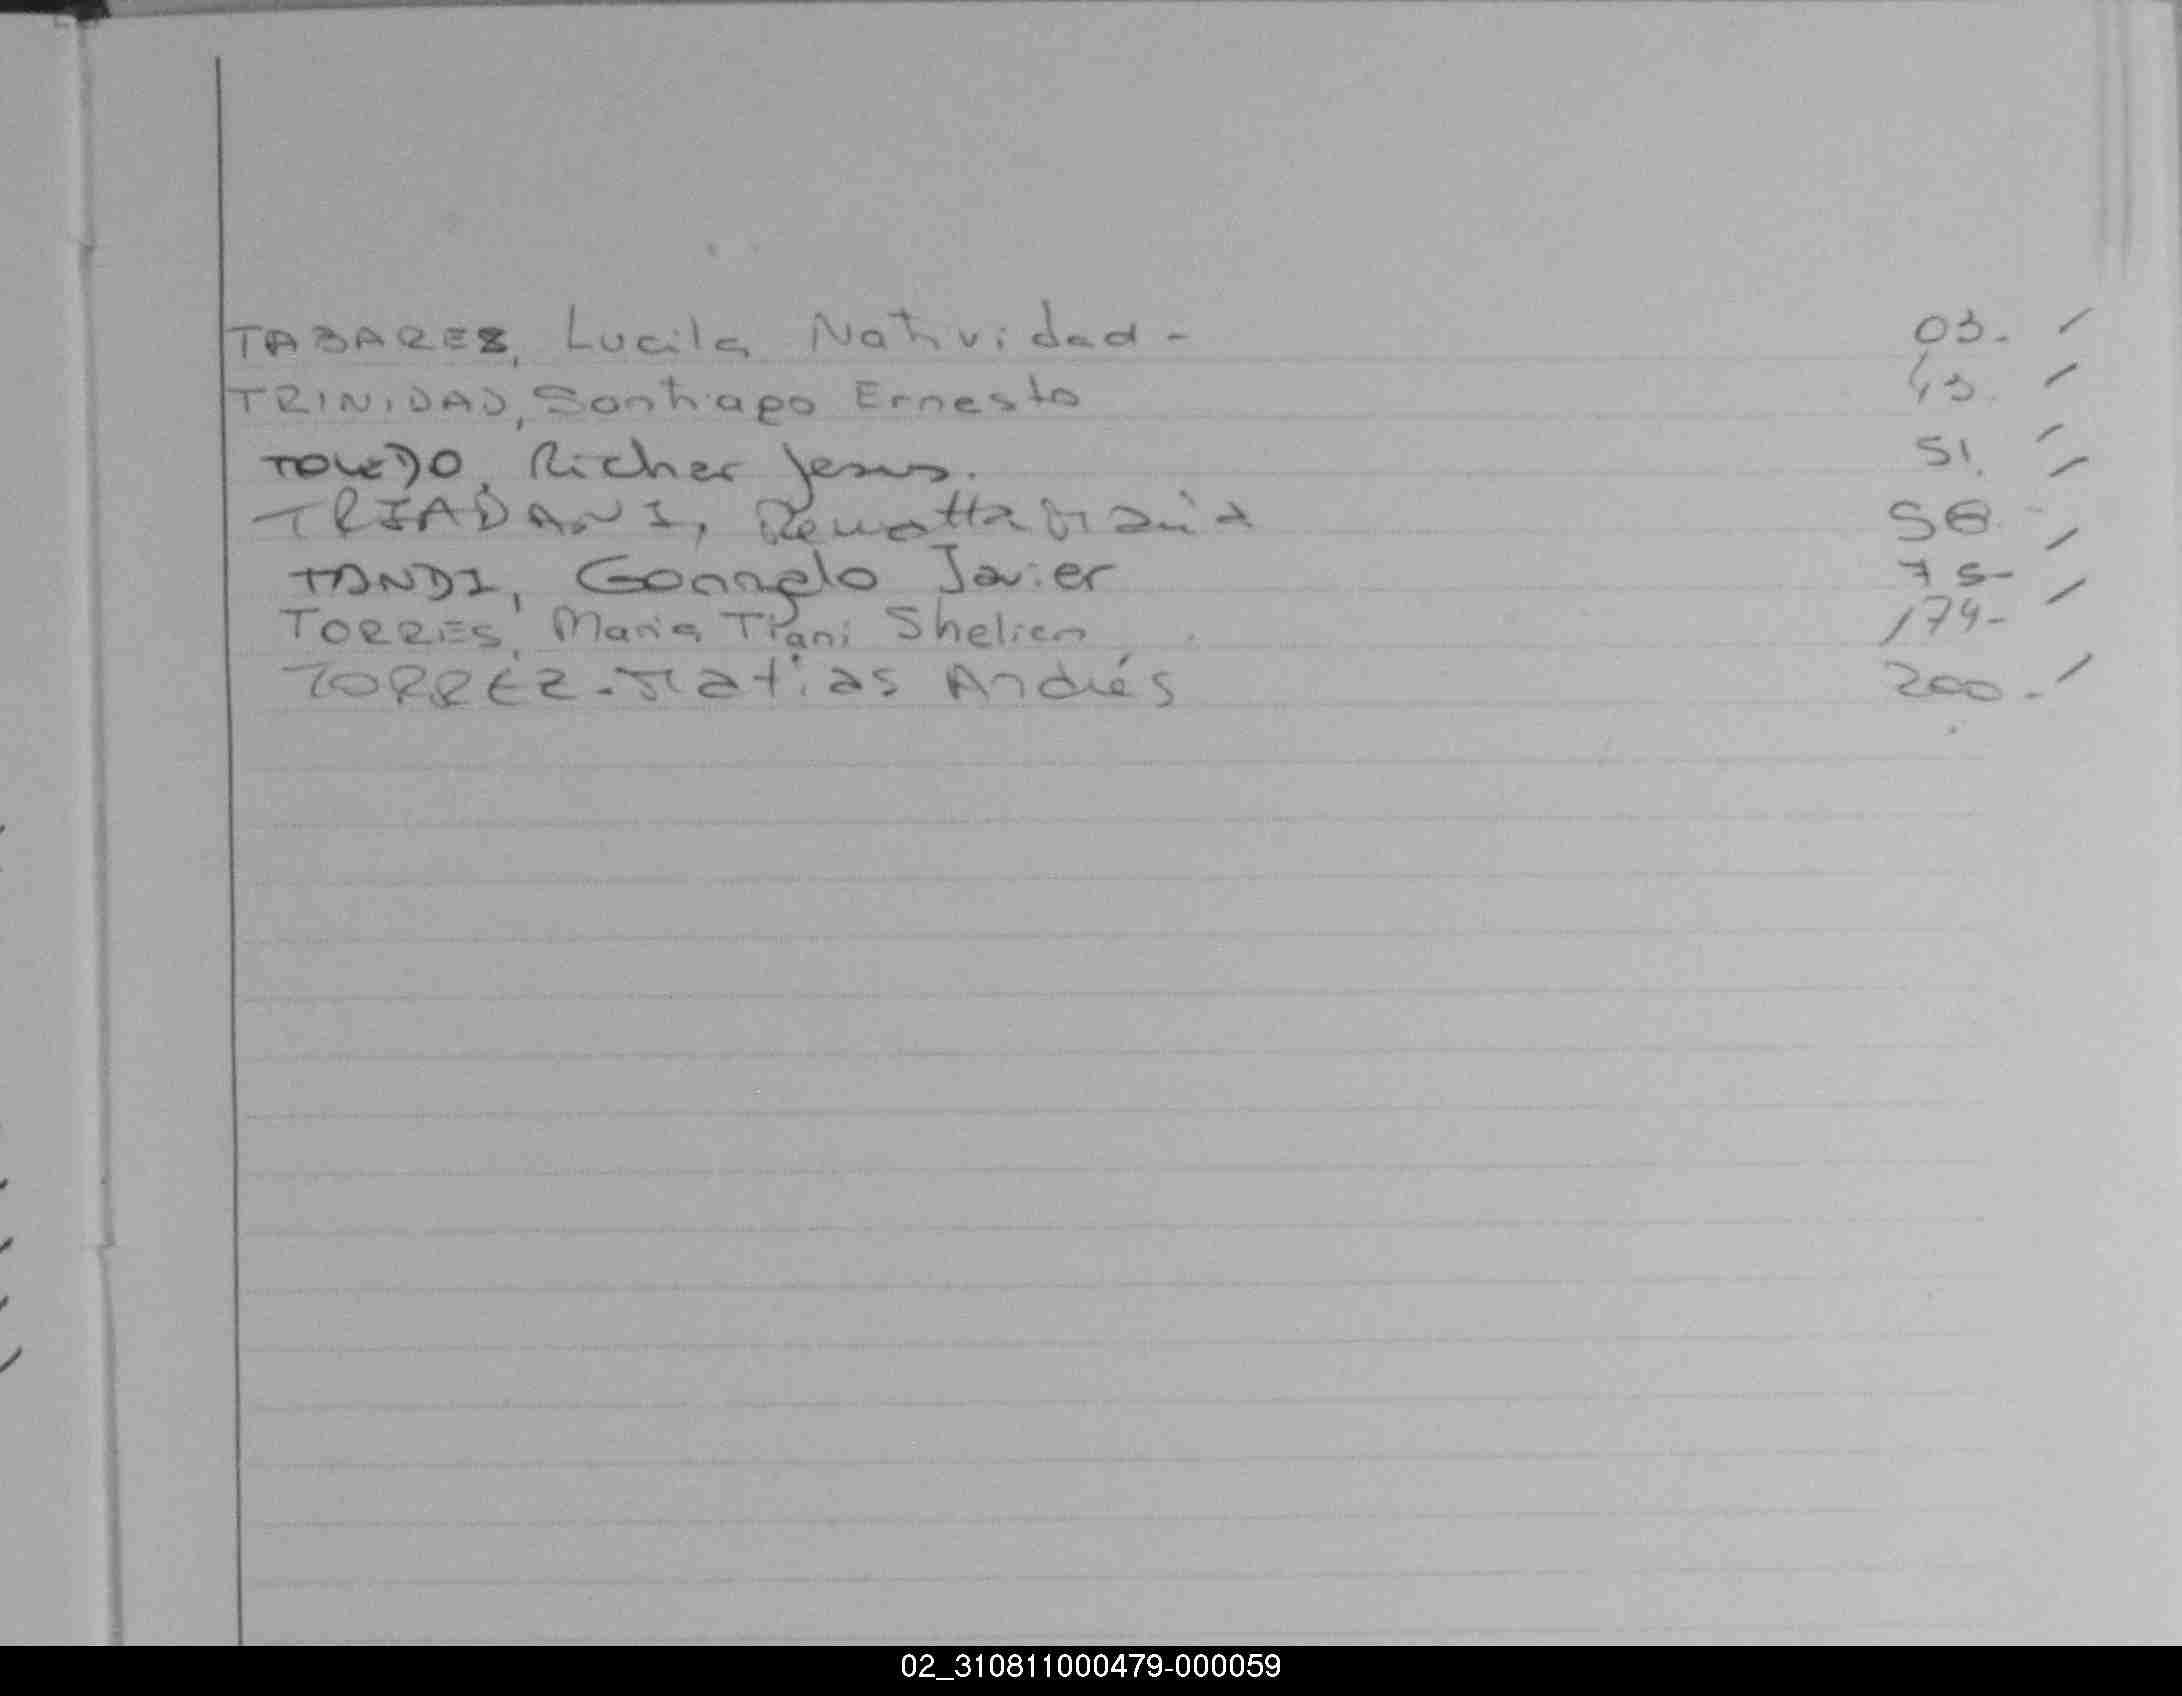 TABARES, Lucila Natividad - 03.
TRINIDAD, Santiago Ernesto 43.
TOLEDO, Richer Jesus. 51.
TRIADANI, María
TANDI, Gonzalo Javier 75-
TORRES, Maria Tiani 174-
TORREZ. Matias Andrés 200.-
02_310811000479-000059